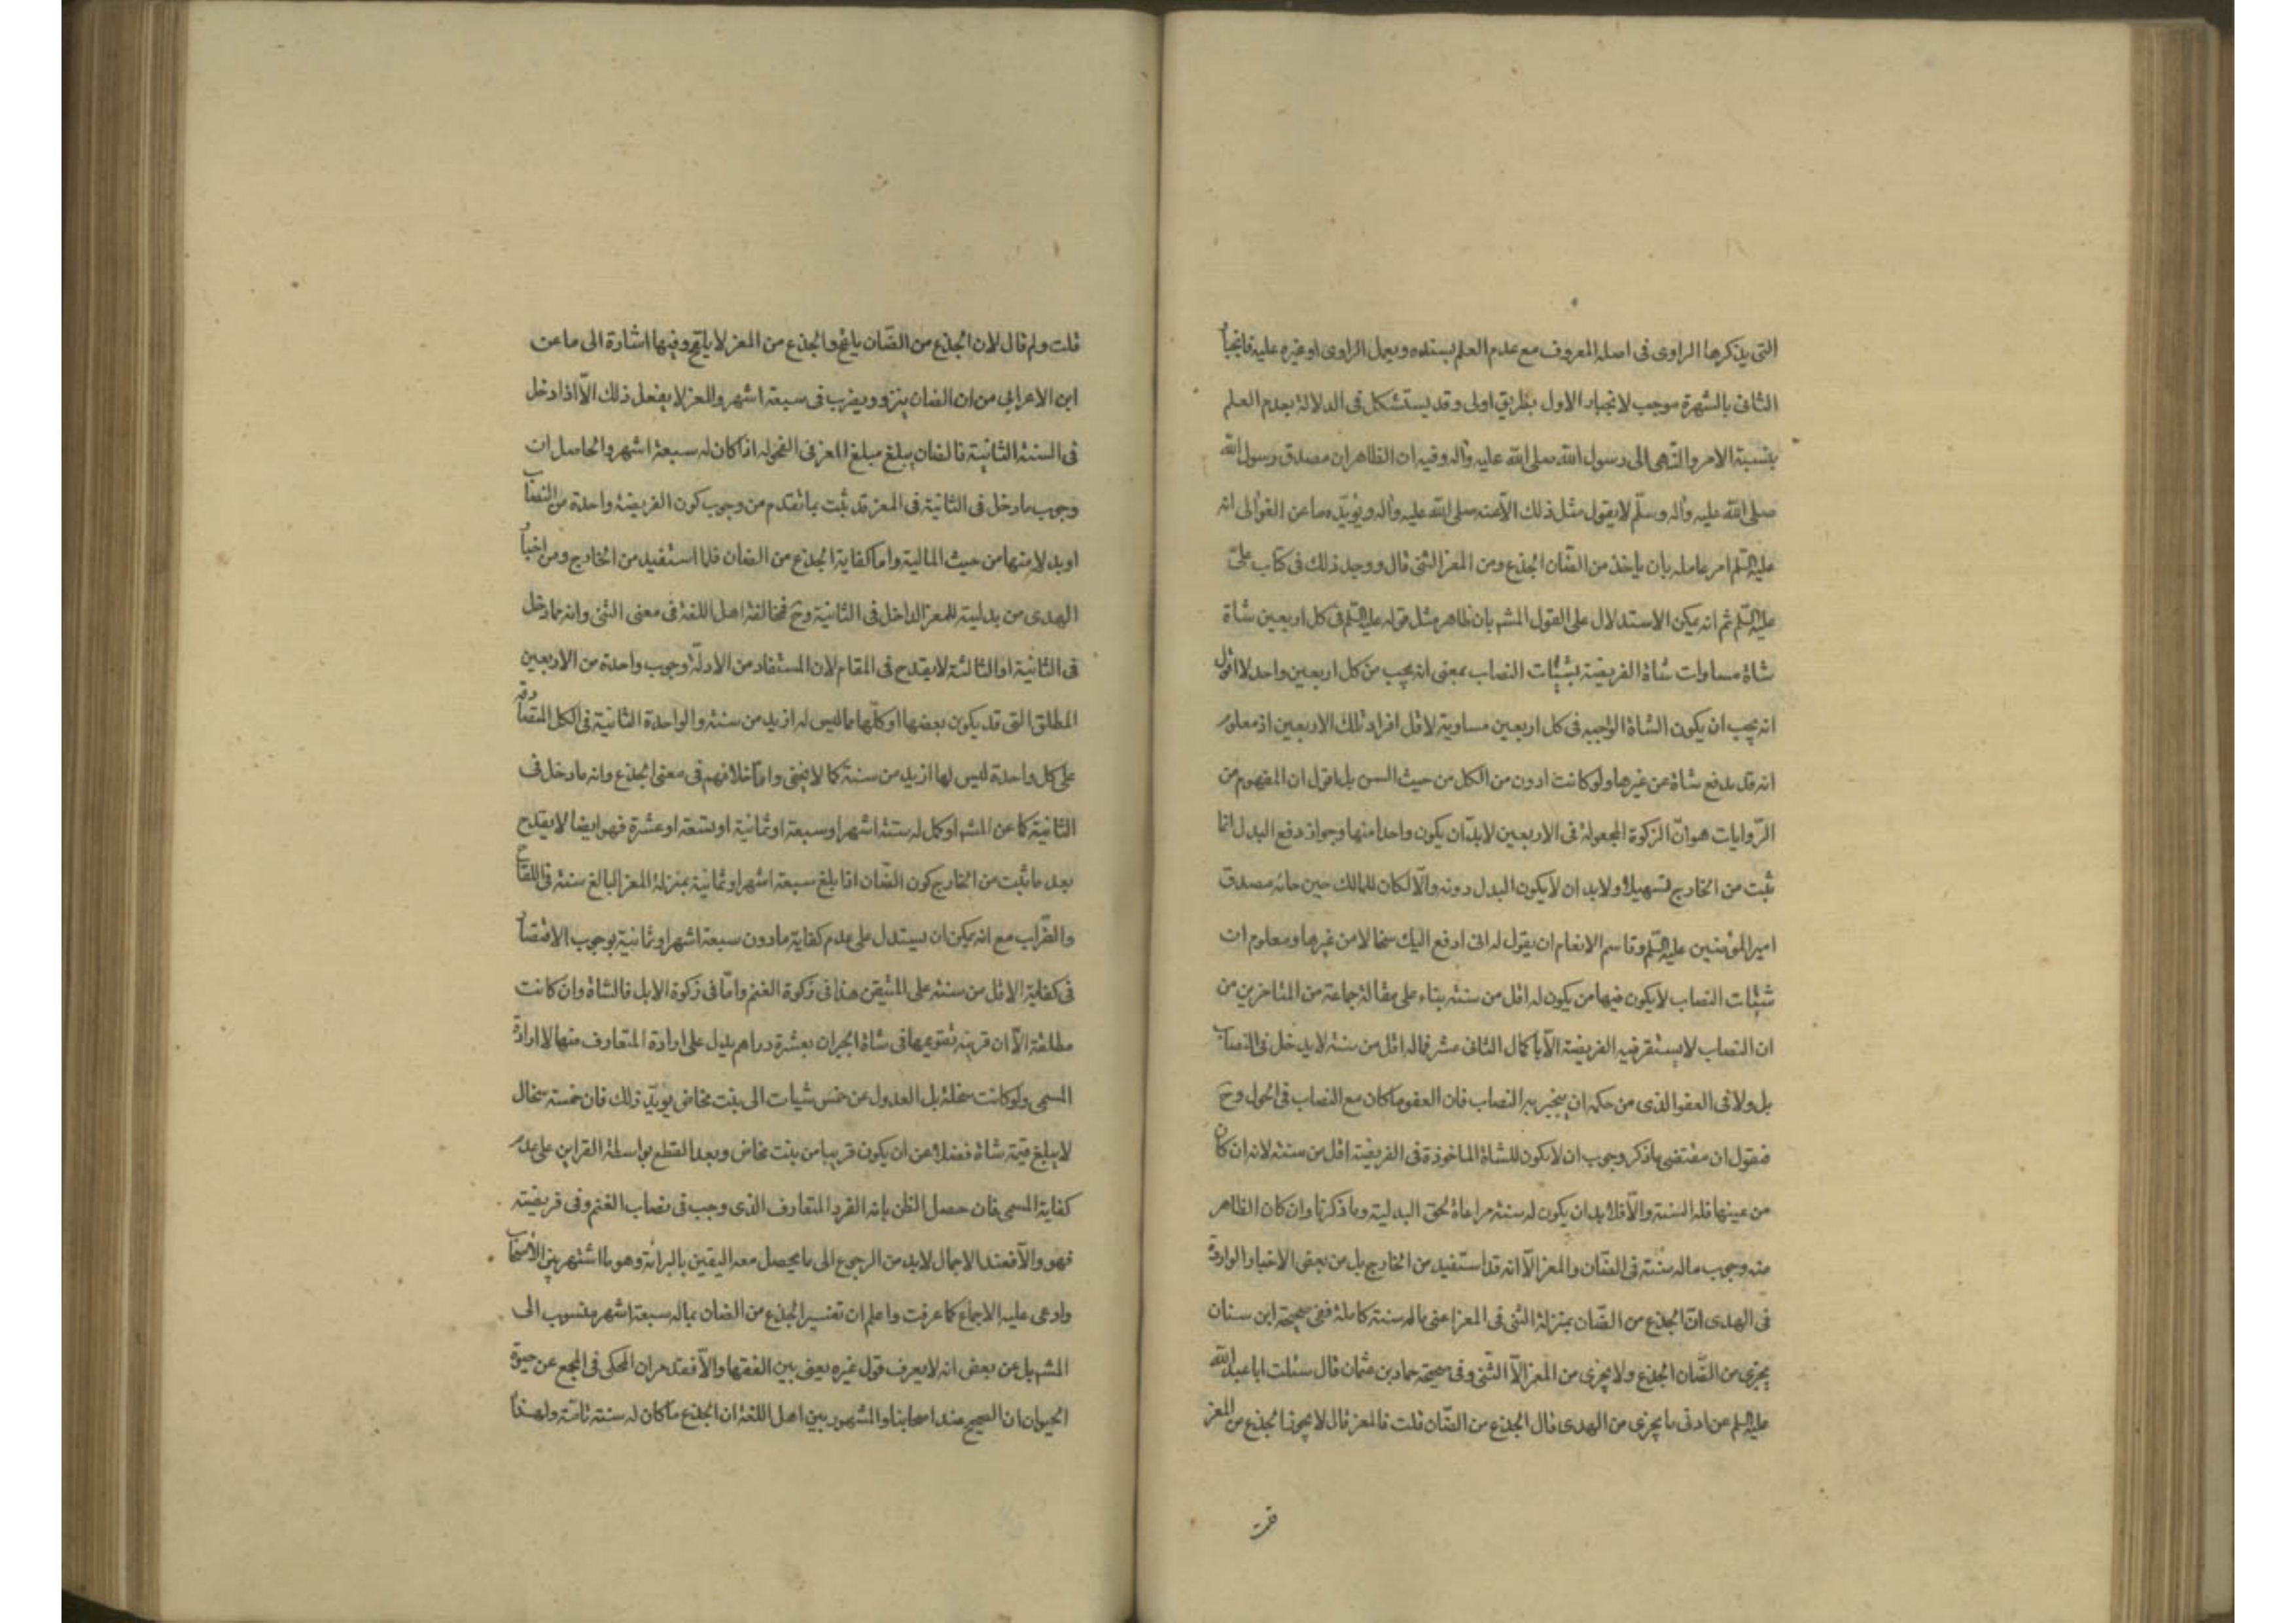 التى يذكرها الراوى فى اصله المعروف مع عدم العلم بسنده ويعمل الراوى او غيره عليه فانجبا
الثانى بالشهرة موجب لانجبار الاول بطريق اولى وقد يستشكل فى الدلالة بعدم العلم
بنسبة الامر والنهى الى رسول الله صلى الله عليه وآله وفيه ان الظاهر ان مصدق رسول الله
صلى الله عليه وآله وسلّم لا يقول مثل ذلك الّا عنه صلى الله عليه وآله ويؤيّده ما عن الغوالى انه
عليه السّلم امر عامله بان ياخذ من الضّان الجذع ومن المعز الثنى قال ووجد ذلك فى كتاب علىّ
عليه السّلم ثم انه يمكن الاستدلال على القول المشهـ بان ظاهر مثل قوله عليه السّلم فى كل اربعين شاة
شاة مساوات شاة الفريضة لشيئات النصاب بمعنى انه يجب من كل اربعين واحد لا اقول
انه يجب ان يكون الشاة الواجبه فى كل اربعين مساوية لاقل افراد تلك الاربعين اذ معلوم
انه قد يدفع شاة من غيرها ولو كانت ادون من الكل من حيث السن بل اقول ان المفهوم من
الرّوايات هو انّ الزكوة المجعولة فى الاربعين لابدّ ان يكون واحدا منها وجواز دفع البدل انما
ثبت من الخارج تسهيلا ولابد ان لا يكون البدل دونه والّا لكان للمالك حين جائه مصدق
امير المؤمنين عليه السّلم وقاسم الانعام ان يقول له انى ادفع اليك سخالا من غيرها ومعلوم ان
شيئات النصاب لا يكون فيها من يكون له اقل من سنته بناء على مقالة جماعة من المتاخرين من
ان النصاب لا يستقر فيه الفريضة الّا باكمال الثانى عشر فماله اقل من سنة لا يدخل فى النصاب
بل ولا فى العفو الذى من حكمه ان ينجبر به النصاب فان العفو ما كان مع النصاب فى الحول وحَ
فنقول ان مقتضى ما ذكر وجوب ان لا يكون للشاة الماخوذة فى الفريضة اقل من سنته لانه ان كان
من عينها فله السنة والّا فلابد ان يكون له سنة مراعاة لحق البدلية وما ذكرنا وان كان الظاهر
منه وجوب ماله سنة فى الضّان والمعز الّا انه قد استفيد من الخارج بل من بعض الاخبار الواردة
فى الهدى انّ الجذع من الضّان بمنزلة الثنى فى المعز اعنى ما له سنة كاملة ففى صحيحة ابن سنان
يجزى من الضّان الجذع ولا يجزى من المعز الّا الثّنى وفى صحيحة حماد بن عثمان قال سئلت ابا عبد الله
عليه السلم عن ادنى ما يجزى من الهدى قال الجذع من الضّان قلت فالمعز قال لا يجوز الجذع من المعز
قلت
قلت ولم قال لان الجذع من الضّان يلقح والجذع من المعز لا يلقح وفيها اشارة الى ما عن
ابن الاعرابى من ان الضان ينزو ويضرب فى سبعة اشهر والمعز لا يفعل ذلك الّا اذا دخل
فى السنة الثانية فالضان يبلغ مبلغ المعز فى الفحوله اذا كان له سبعة اشهر والحاصل ان
وجوب ما دخل فى الثانية فى المعز قد ثبت بما تقدم من وجوب كون الفريضة واحدة من النصاب
او بدلا منها من حيث المالية واما كفاية الجذع من الضان فلما استفيد من الخارج ومن اخبا
الهدى من بدليته للمعز الداخل فى الثانية وحَ فمخالفة اهل اللغة فى معنى الثنى وانه ما دخل
فى الثانية او الثالثة لا يقدح فى المقام لان المستفاد من الادلّة وجوب واحدة من الاربعين
المطلق التى قد يكون بعضها او كلّها مما ليس له ازيد من سنة والواحدة الثانية فى الكل
على كل واحدة ليس لها ازيد من سنة كما لا يخفى وامّا خلافهم فى معنى الجذع وانه ما دخل فى
الثانية كما عن المشهـ او كمل له ستة اشهر او سبعة او ثمانية او تسعة او عشرة فهو ايضا لا يقدح
بعد ما ثبت من الخارج كون الضّان اذا بلغ سبعة اشهر او ثمانية بمنزلة المعز البالغ سنة فى اللقاح
والضّراب مع انه يمكن ان يستدل على عدم كفاية ما دون سبعة اشهر او ثمانية بوجوب الاقتصا
فى كفاية الاقل من سنة على المتيقن هذا فى زكوة الغنم وامّا فى زكوة الابل فالشاة وان كانت
مطلقة الّا ان قرينة تقويمها فى شاة الجبران بعشرة دراهم يدل على ارادة المتعارف منها لا ارادة
المسمى ولو كانت سخلة بل العدول عن خمس شيات الى بنت مخاض يؤيّد ذلك فان خمسة سخال
لا يبلغ قيمة شاة فضلا عن ان يكون قريبا من بنت مخاض وبعد القطع بواسطة القراين على عدم
كفاية المسمى فان حصل الظن بانه الفرد المتعارف الذى وجب فى نصاب الغنم وفى فريضته
فهو والّا فعند الاجمال لابد من الرجوع الى ما يحصل معه اليقين بالبرائة وهو ما اشتهر بين الاصحاب
وادعى عليه الاجماع كما عرفت واعلم ان تفسير الجذع من الضان بماله سبعة اشهر منسوب الى
المشهـ بل عن بعض انه لا يعرف قول غيره يعنى بين الفقها والّا فقد مر ان المحكى فى المجمع عن حيوة
الحيوان ان الصحيح عند اصحابنا والمشهور بين اهل اللغة ان الجذع ما كان له سنة تامّة ولهذا